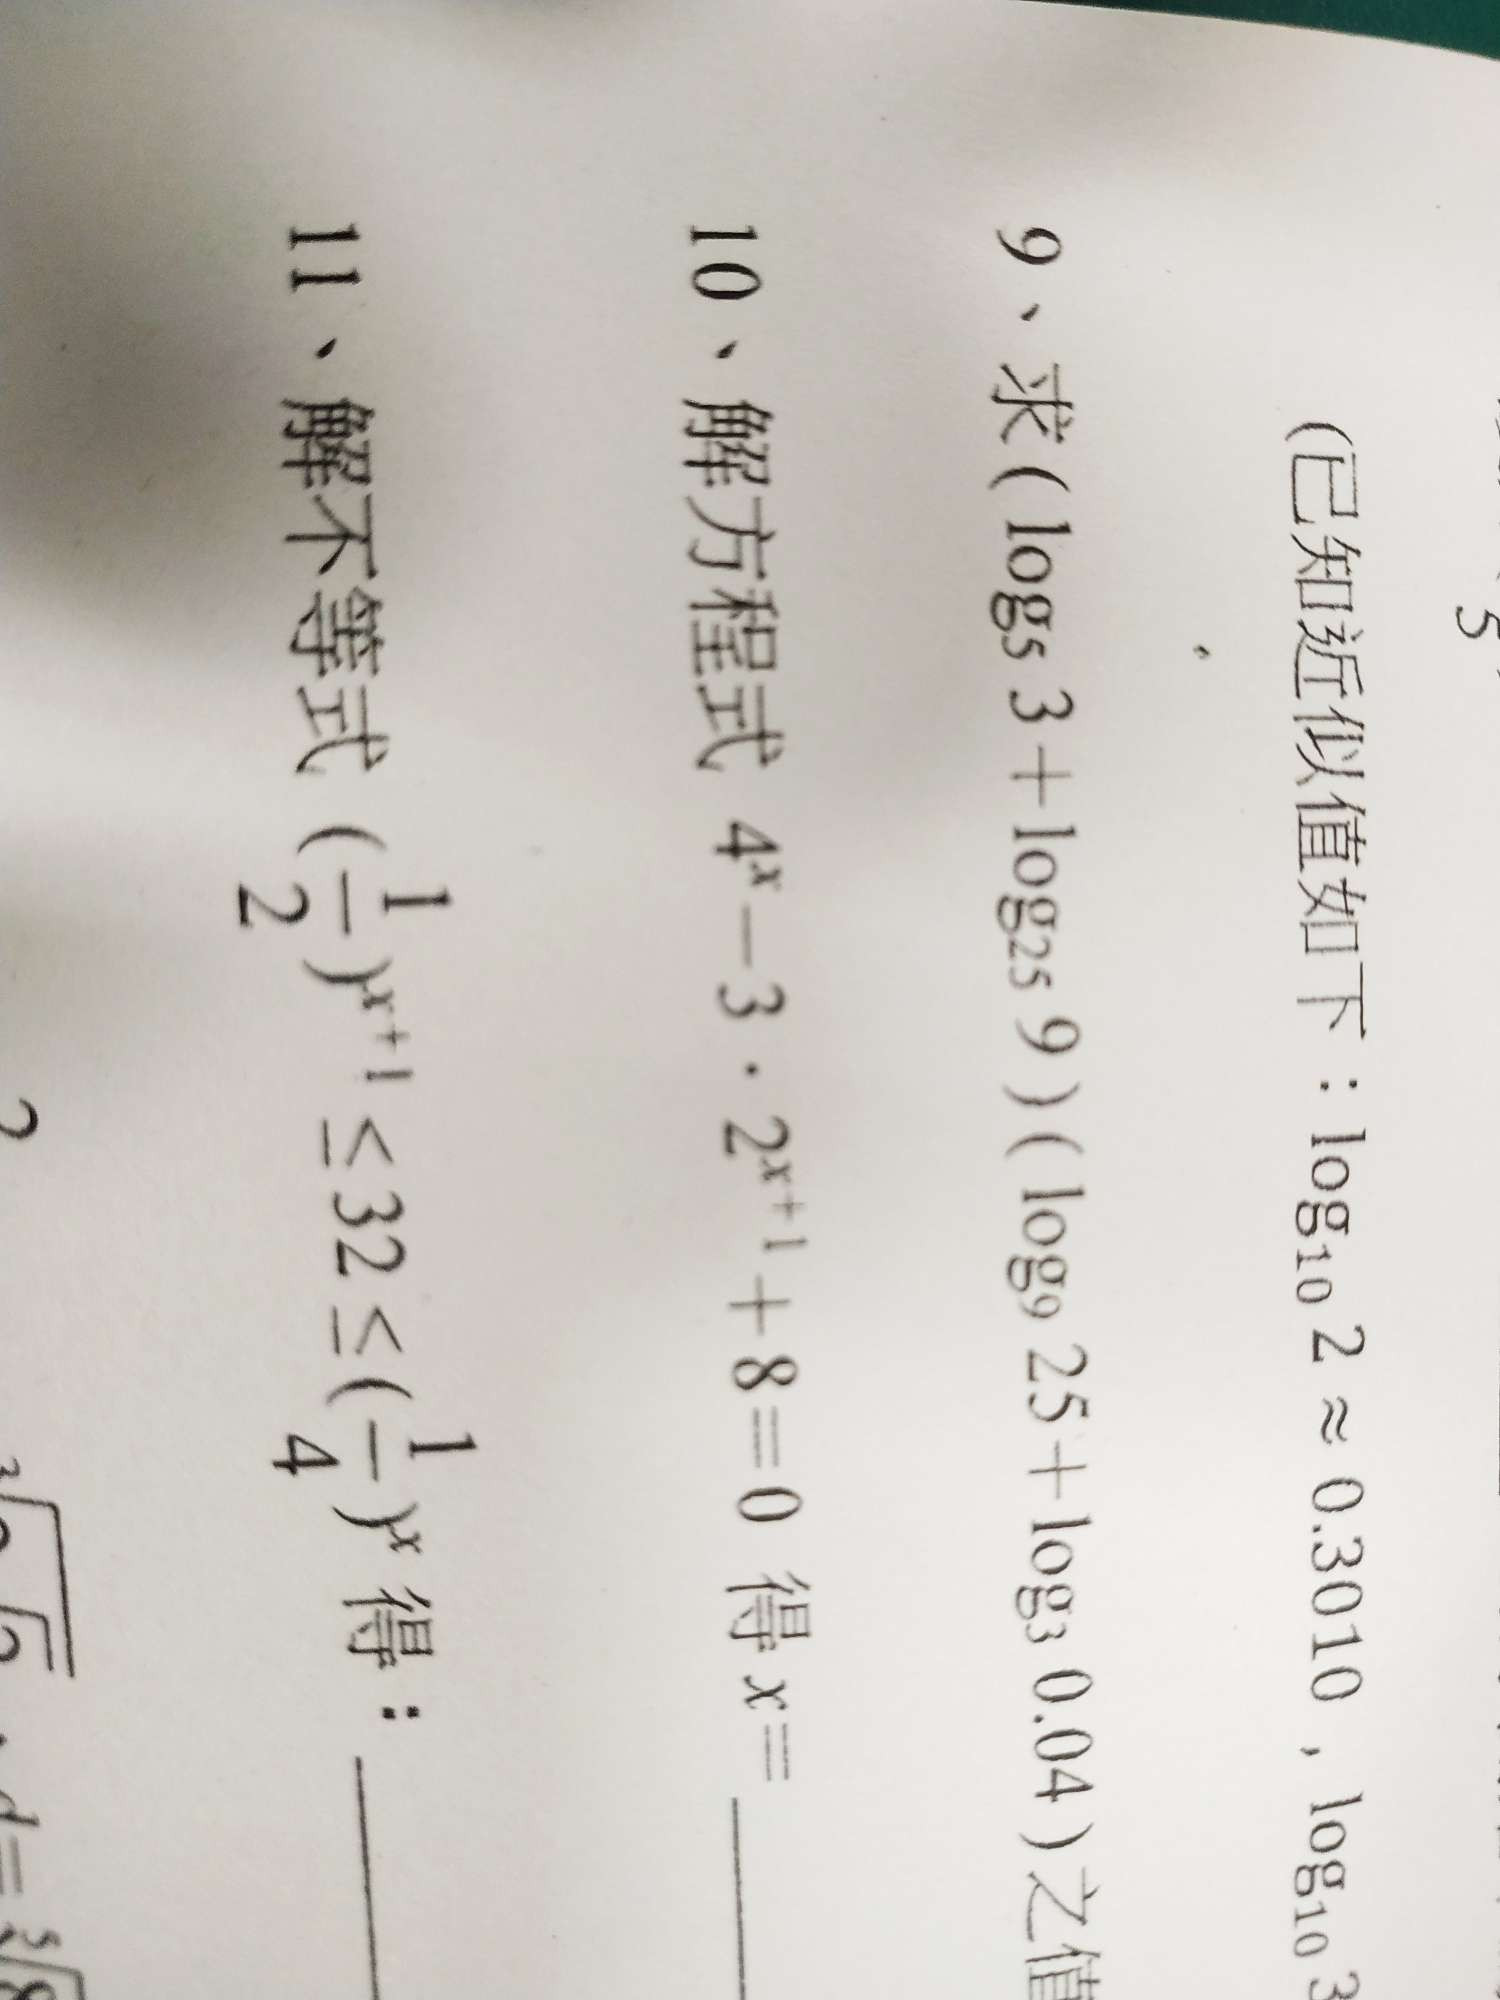 5
(已知近似值如下：log₁₀ 2 ≈ 0.3010，log₁₀ 3
9、求(log₅ 3＋log₂₅ 9)(log₉ 25＋log₃ 0.04)之值
10、解方程式 4ˣ－3 · 2ˣ⁺¹＋8＝0 得 x＝＿＿＿
11、解不等式 (1/2)ˣ⁺¹ ≤ 32 ≤ (1/4)ˣ 得：＿＿＿